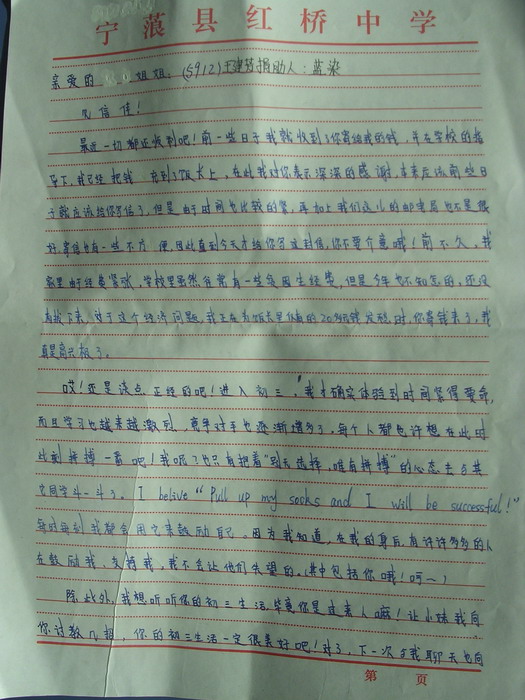 宁蒗县红桥中学
亲爱的 姐姐:(5912)王建芬捐助人:蓝染
见信佳!
最近一切都还快乐吧!前一些日子我就收到了你寄给我的钱,并在学校的指
导下,我已经把钱充到了饭卡上,在此我对你表示深深的感谢,本来应该前些日
子就应该给你写信了,但是由于时间也比较的紧,再加上我们这儿的邮电局也不是很
好,寄信也有一些不方便,因此直到今天才给你写这封信,你不要介意哦!前不久,我
家里由于经费紧张,学校里虽然往常有一些贫困生经费,但是今年也不知怎的,还没
有拨下来,对于这个经济问题,我正在为饭卡里仅有的20多元钱发愁时,你寄钱来了,我
真是高兴极了。
哎!还是谈点正经的吧!进入初三,我才确实体验到时间紧得要命,
而且学习也越来越激烈,竞争对手也逐渐增多了,每个人都也许想在此时
此刻拼搏一番吧!我呢?也只有抱着"别无选择,唯有拼搏"的心态去与其
它同学斗一斗了。I belive "Pull up my socks and I will be successful!"
每时每刻,我都会用它来鼓励自己。因为我知道,在我的身后有许许多多的人
在鼓励我、支持我,我不会让他们失望的。(其中包括你哦!呵~)
除此外,我想听听你的初三生活,毕竟你是过来人嘛!让小妹我向
你讨教几招,你的初三生活一定很美好吧!对了,下一次与我聊天也向
第 页